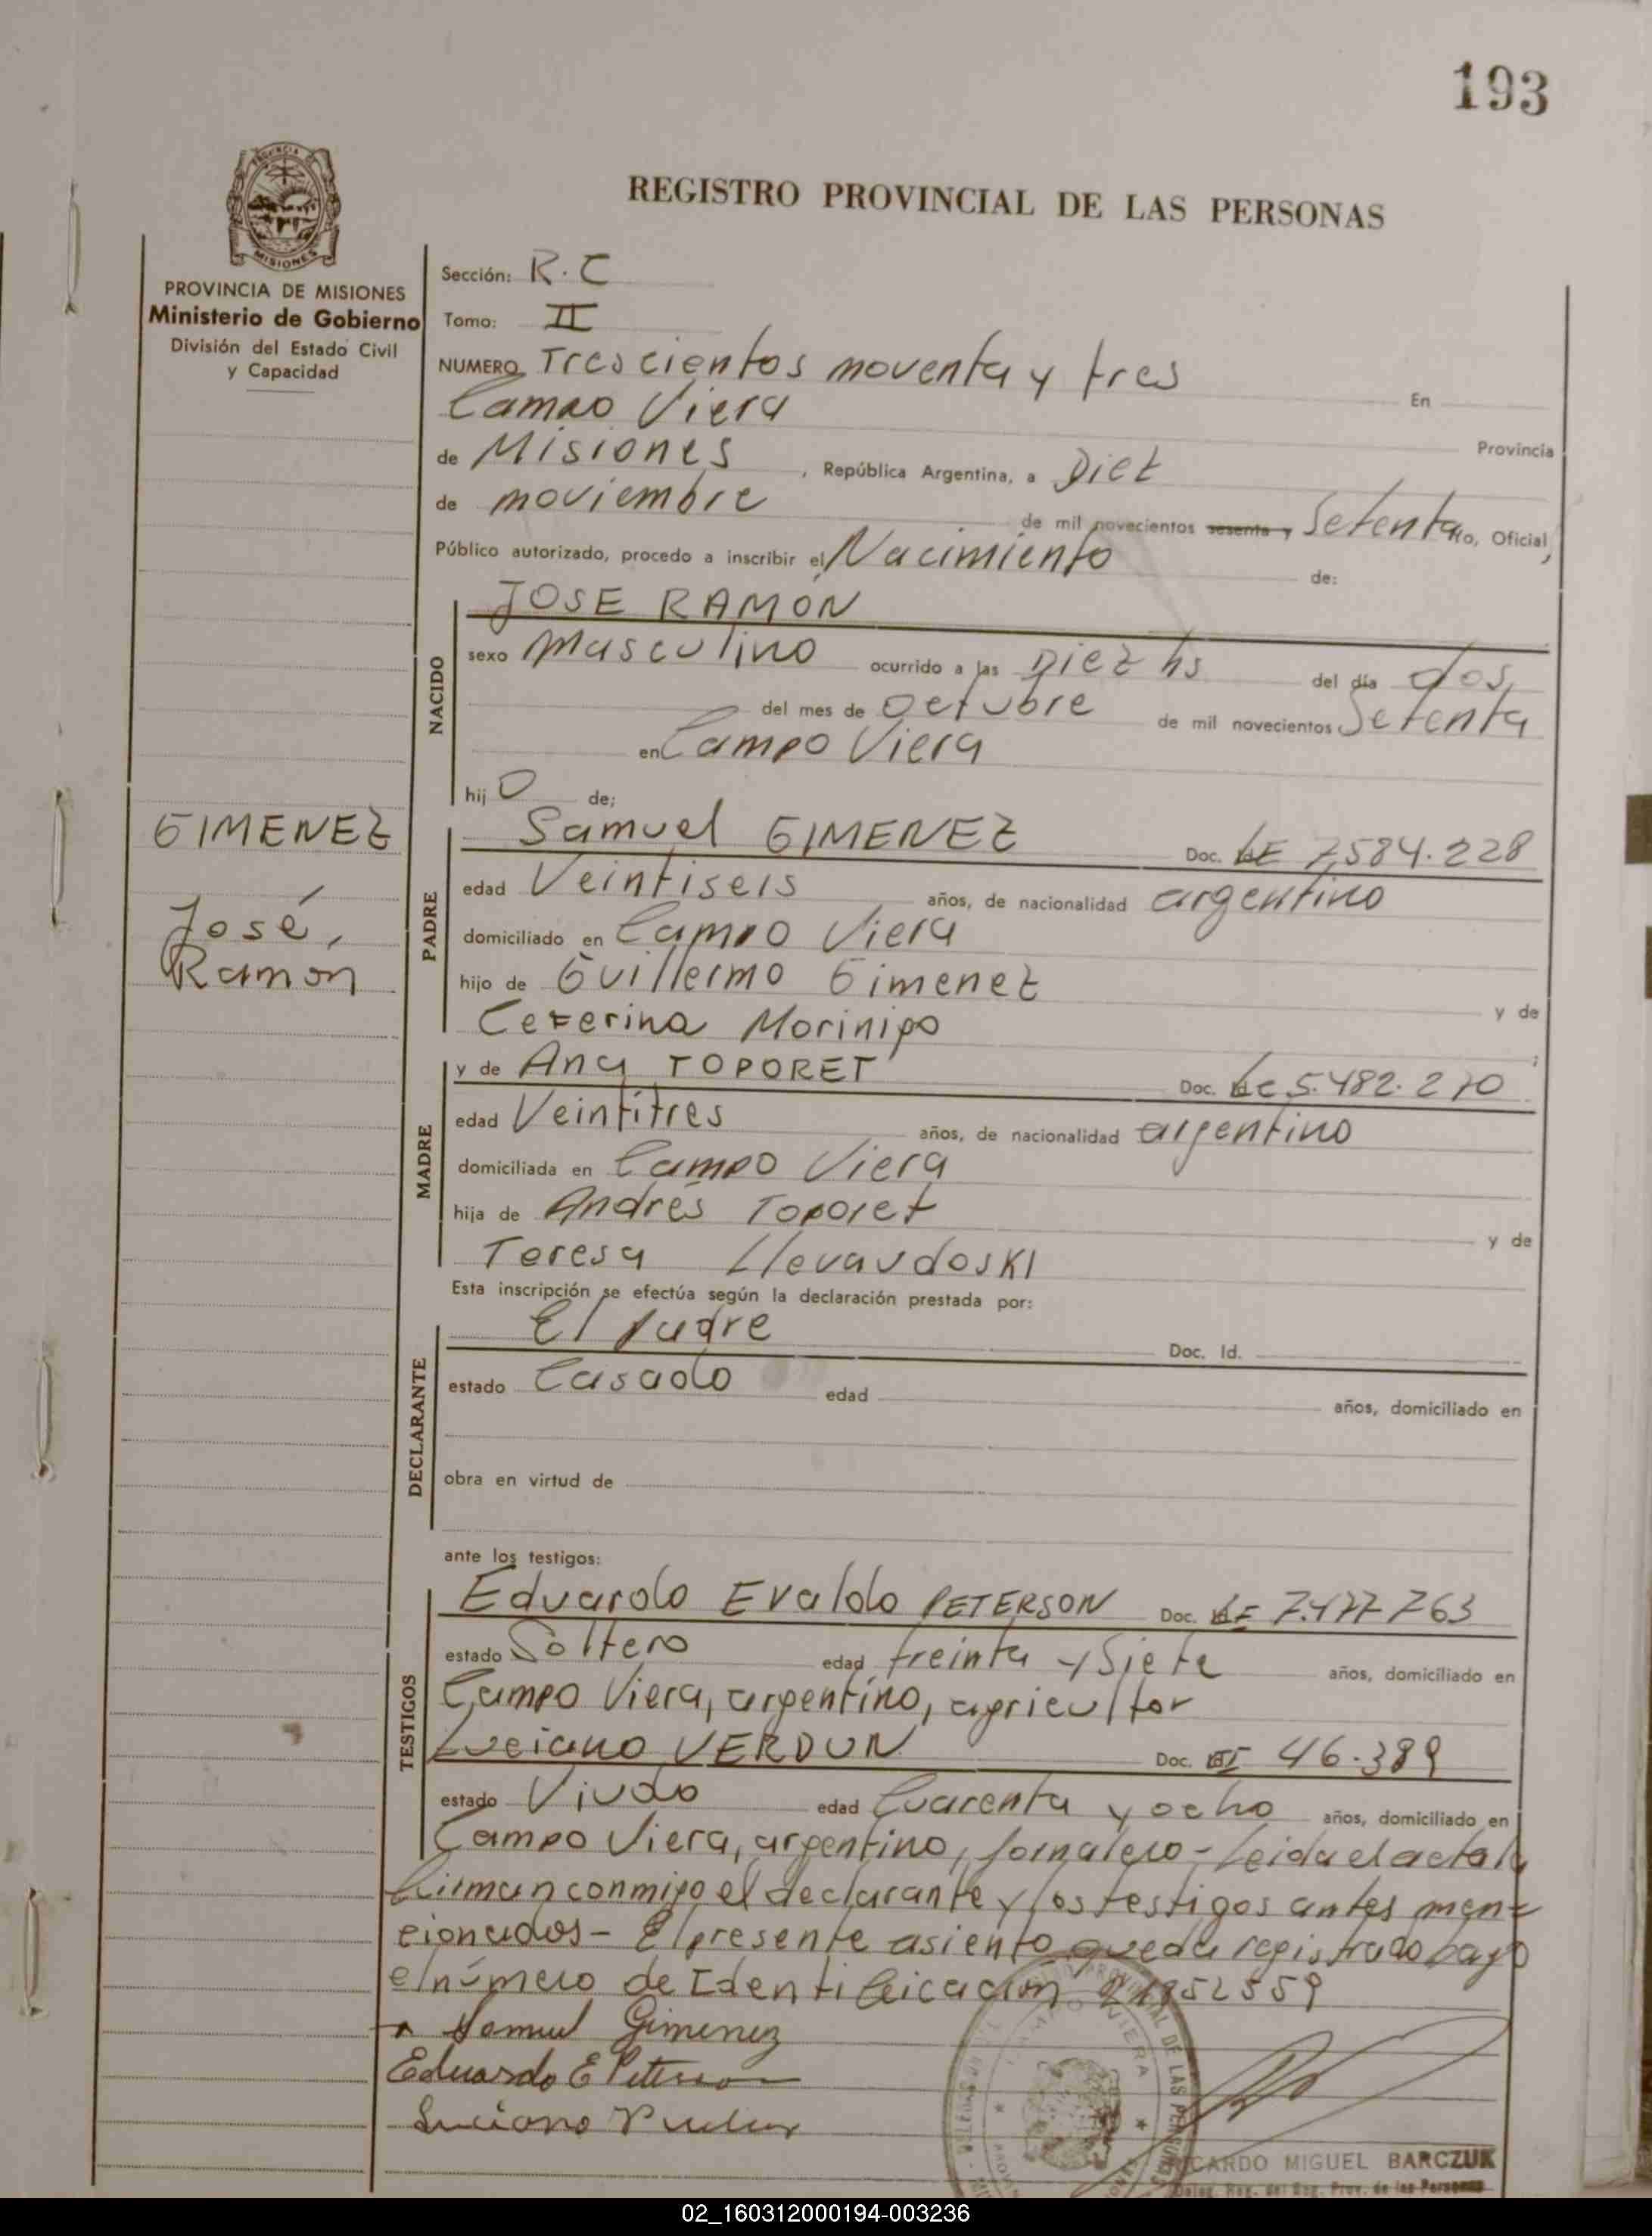 193
REGISTRO PROVINCIAL DE LAS PERSONAS
MISIONES
PROVINCIA DE MISIONES
Ministerio de Gobierno
División del Estado Civil
y Capacidad
Sección: R.C
Tomo: II
NUMERO Trescientos noventa y tres En
Campo Viera Provincia
de Misiones, República Argentina, a Diez
de noviembre de mil novecientos sesenta y Setenta Yo, Oficial
Público autorizado, procedo a inscribir el Nacimiento de:
NACIDO
JOSE RAMON
sexo masculino ocurrido a las Diez hs del día dos
del mes de octubre de mil novecientos Setenta
en Campo Viera
hijo de;
GIMENEZ
José,
Ramón
PADRE
Samuel GIMENEZ Doc. LE 7.584.228
edad Veintiseis años, de nacionalidad argentino
domiciliado en Campo Viera
hijo de Guillermo Gimenez y de
Ceferina Morinigo
MADRE
y de Ana TOPORET Doc. LC 5.482.270
edad Veintitres años, de nacionalidad argentino
domiciliada en Campo Viera
hija de Andrés Toporet y de
Teresa Llevaudoski
Esta inscripción se efectúa según la declaración prestada por:
DECLARANTE
El padre Doc. Id.
estado Casado edad años, domiciliado en
obra en virtud de
ante los testigos:
TESTIGOS
Eduardo Evaldo PETERSON Doc. LE 7.477.763
estado Soltero edad treinta y Siete años, domiciliado en
Campo Viera, argentino, agricultor
Luciano VERDUN Doc. 46.389
estado Viudo edad Cuarenta y ocho años, domiciliado en
Campo Viera, argentino, jornalero - Leida el acta la
firman conmigo el declarante y los testigos antes men=
cionados - El presente asiento queda registrado bajo
el número de Identificación 21852559
Samuel Gimenez
Eduardo E Peterson
Luciano Verdun
CARDO MIGUEL BARCZUK
Deleg. Reg. del Reg. Prov. de las Personas
02_160312000194-003236